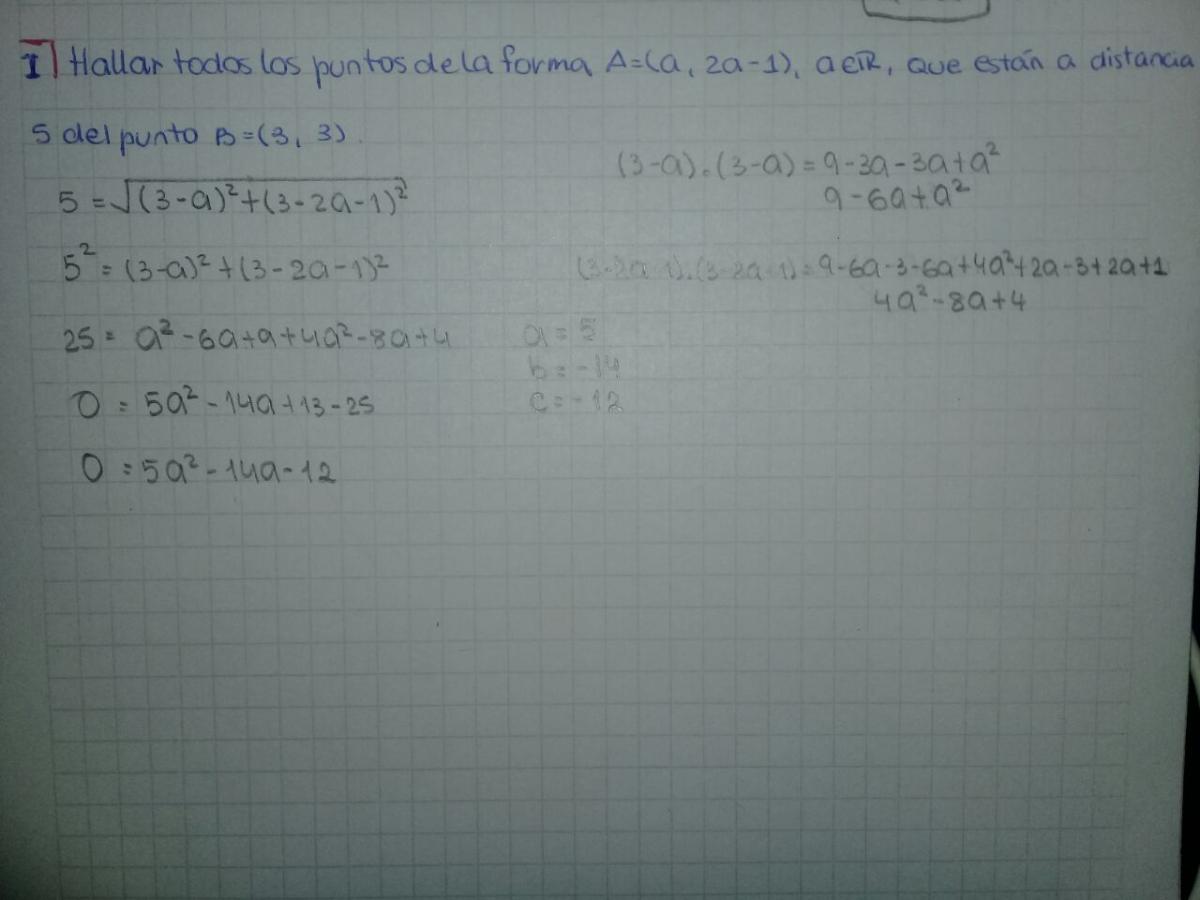 I] Hallar todos los puntos de la forma A=(a, 2a-1), a∈ℝ, que están a distancia
5 del punto B=(3, 3).
5 = √(3-a)²+(3-2a-1)²
5² = (3-a)²+(3-2a-1)²
25 = a²-6a+9+4a²-8a+4
0 = 5a²-14a+13-25
0 = 5a²-14a-12
a = 5
b = -14
c = -12
(3-a).(3-a) = 9-3a-3a+a²
9-6a+a²
(3-2a-1).(3-2a-1) = 9-6a-3-6a+4a²+2a-3+2a+1
4a²-8a+4